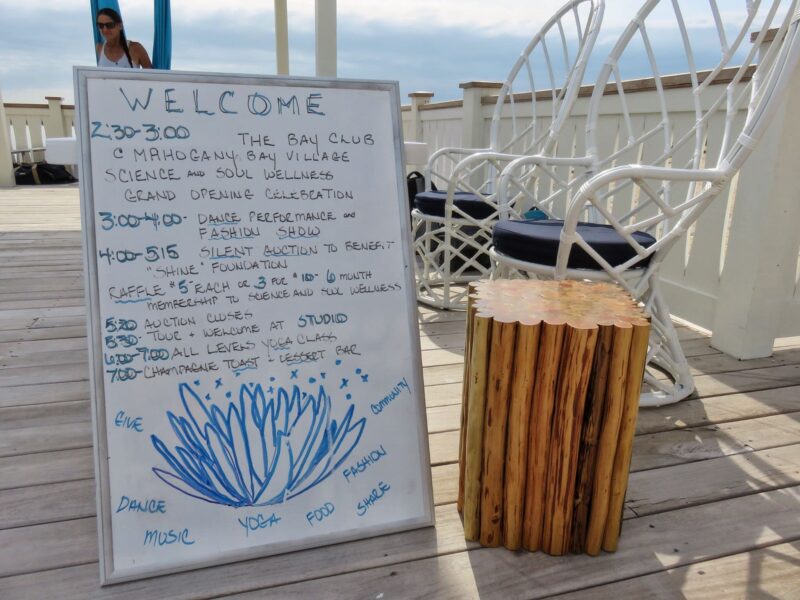 WELCOME
2:30-3:00 THE BAY CLUB
@ MAHOGANY BAY VILLAGE
SCIENCE AND SOUL WELLNESS
GRAND OPENING CELEBRATION
3:00-4:00- DANCE PERFORMANCE and
FASHION SHOW
4:00-515 SILENT AUCTION TO BENEFIT
"SHINE" FOUNDATION
RAFFLE $5- EACH OR 3 FOR $10- 6 MONTH
MEMBERSHIP TO SCIENCE AND SOUL WELLNESS
5:20 AUCTION CLOSES
5:30- TOUR + WELCOME AT STUDIO
6:00-7:00 ALL LEVELS YOGA CLASS
7:00- CHAMPAGNE TOAST + DESSERT BAR
GIVE
COMMUNITY
DANCE
MUSIC
YOGA
FOOD
FASHION
SHARE